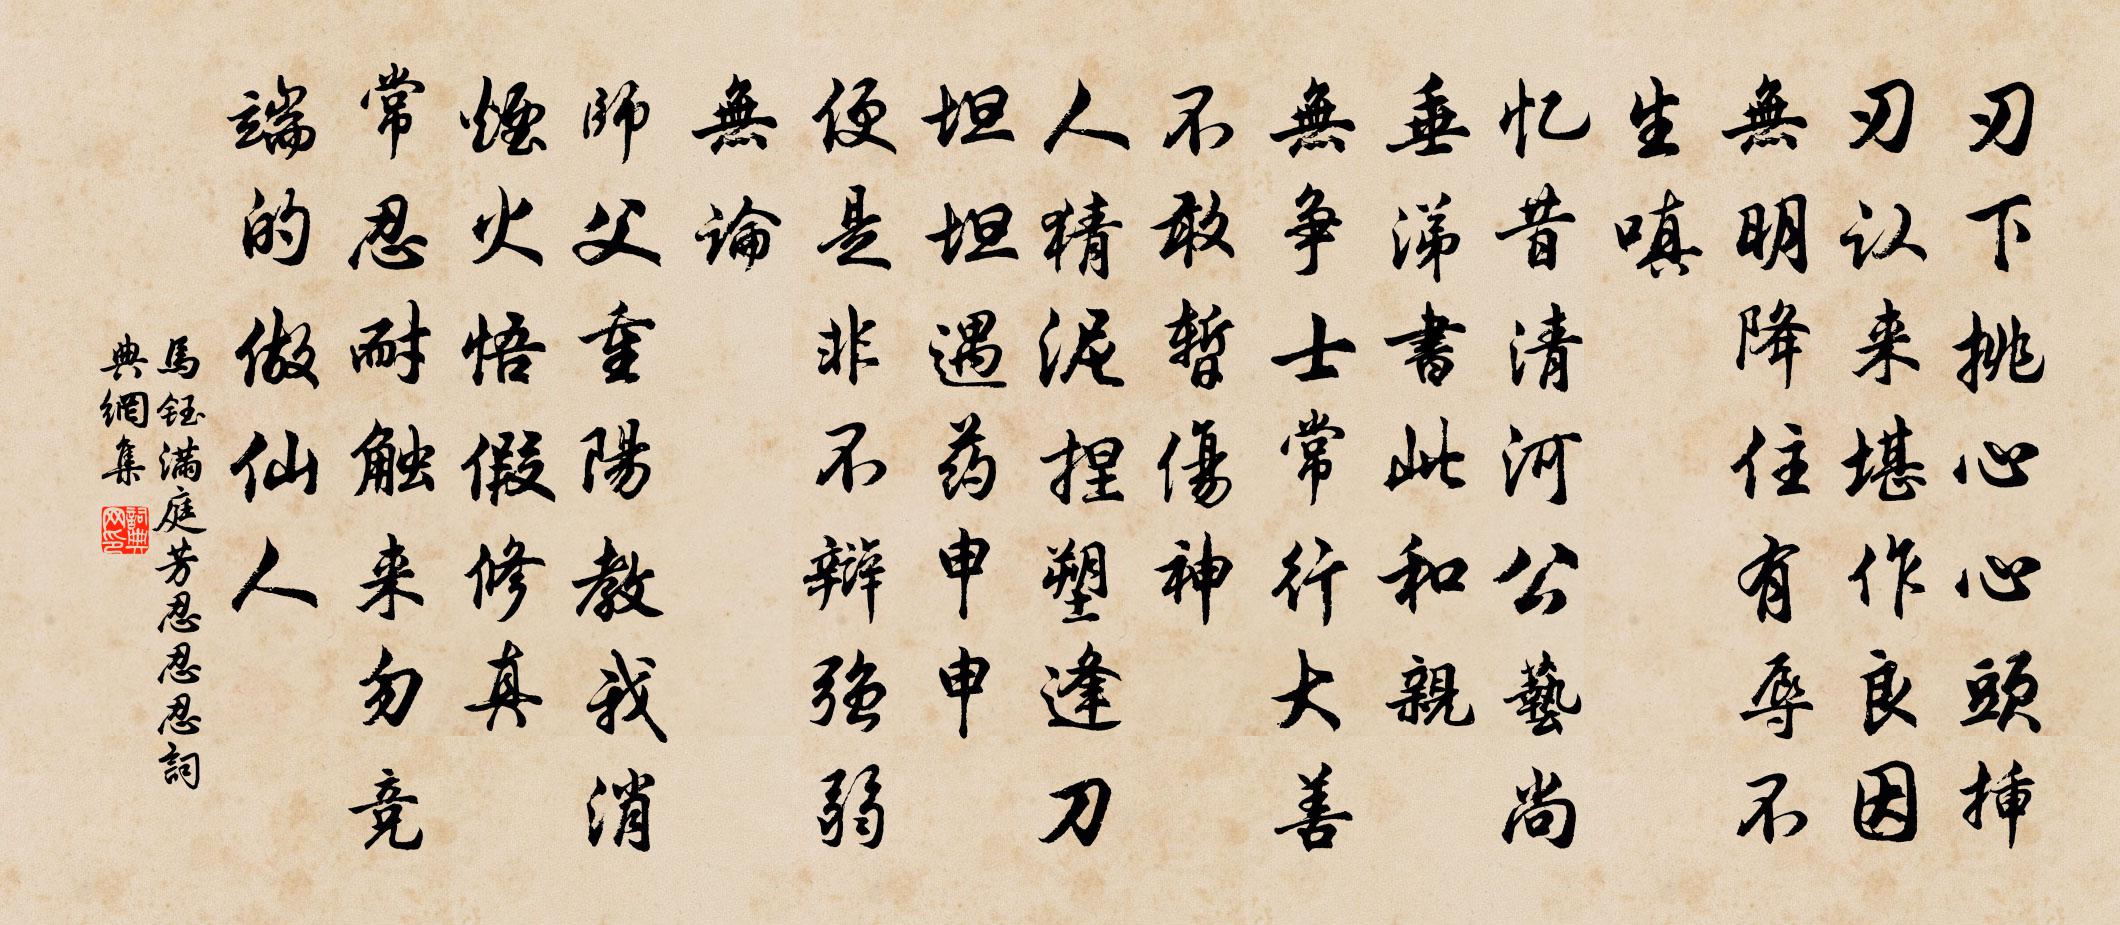 刃下挑心心頭揷
刃认来堪作良因
無明降住有辱不
生嗔
忆昔清河公藝尚
垂涕書此和親
無争士常行大善
不敢暫傷神
人猜泥捏塑逢刀
坦坦遇药申申
便是非不辩强弱
無論
師父重陽教我消
煙火悟假修真
常忍耐触来勿竞
端的做仙人
馬鈺满庭芳忍忍忍詞
典網集
詞典网印